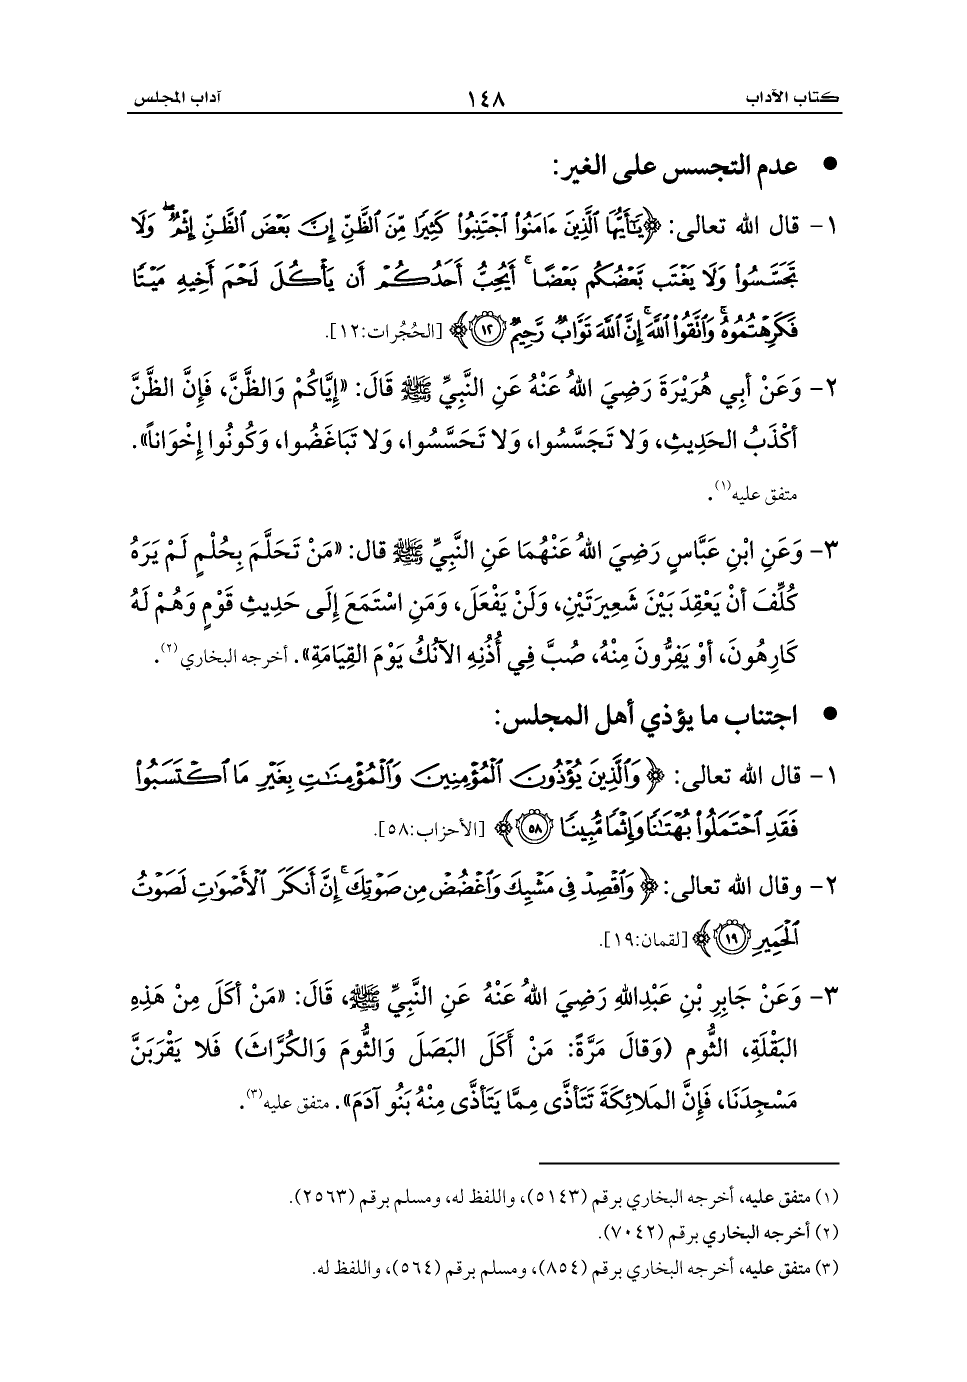 كتاب الآداب ١٤٨ آداب المجلس
● عدم التجسس على الغير:
١- قال الله تعالى: ﴿يَٰٓأَيُّهَا ٱلَّذِينَ ءَامَنُوا۟ ٱجْتَنِبُوا۟ كَثِيرًا مِّنَ ٱلظَّنِّ إِنَّ بَعْضَ ٱلظَّنِّ إِثْمٌ ۖ وَلَا
تَجَسَّسُوا۟ وَلَا يَغْتَب بَّعْضُكُم بَعْضًا ۚ أَيُحِبُّ أَحَدُكُمْ أَن يَأْكُلَ لَحْمَ أَخِيهِ مَيْتًا
فَكَرِهْتُمُوهُ ۚ وَٱتَّقُوا۟ ٱللَّهَ ۚ إِنَّ ٱللَّهَ تَوَّابٌ رَّحِيمٌ ١٢﴾ [الحُجُرات:١٢].
٢- وَعَنْ أبِي هُرَيْرَةَ رَضِيَ اللهُ عَنْهُ عَنِ النَّبِيِّ ﷺ قَالَ: «إيَّاكُمْ وَالظَّنَّ، فَإِنَّ الظَّنَّ
أكْذَبُ الحَدِيثِ، وَلا تَجَسَّسُوا، وَلا تَحَسَّسُوا، وَلا تَبَاغَضُوا، وَكُونُوا إخْوَاناً».
متفق عليه(١).
٣- وَعَنِ ابْنِ عَبَّاسٍ رَضِيَ اللهُ عَنْهُمَا عَنِ النَّبِيِّ ﷺ قال: «مَنْ تَحَلَّمَ بِحُلْمٍ لَمْ يَرَهُ
كُلِّفَ أنْ يَعْقِدَ بَيْنَ شَعِيرَتَيْنِ، وَلَنْ يَفْعَلَ، وَمَنِ اسْتَمَعَ إلَى حَدِيثِ قَوْمٍ وَهُمْ لَهُ
كَارِهُونَ، أوْ يَفِرُّونَ مِنْهُ، صُبَّ فِي أُذُنِهِ الآنُكُ يَوْمَ القِيَامَةِ». أخرجه البخاري(٢).
● اجتناب ما يؤذي أهل المجلس:
١- قال الله تعالى: ﴿وَٱلَّذِينَ يُؤْذُونَ ٱلْمُؤْمِنِينَ وَٱلْمُؤْمِنَٰتِ بِغَيْرِ مَا ٱكْتَسَبُوا۟
فَقَدِ ٱحْتَمَلُوا۟ بُهْتَٰنًا وَإِثْمًا مُّبِينًا ٥٨﴾ [الأحزاب:٥٨].
٢- وقال الله تعالى: ﴿وَٱقْصِدْ فِى مَشْيِكَ وَٱغْضُضْ مِن صَوْتِكَ ۚ إِنَّ أَنكَرَ ٱلْأَصْوَٰتِ لَصَوْتُ
ٱلْحَمِيرِ ١٩﴾ [لقمان:١٩].
٣- وَعَنْ جَابِرِ بْنِ عَبْدِاللهِ رَضِيَ اللهُ عَنْهُ عَنِ النَّبِيِّ ﷺ، قَالَ: «مَنْ أكَلَ مِنْ هَذِهِ
البَقْلَةِ، الثُّومِ (وَقالَ مَرَّةً: مَنْ أَكَلَ البَصَلَ وَالثُّومَ وَالكُرَّاثَ) فَلا يَقْرَبَنَّ
مَسْجِدَنَا، فَإِنَّ المَلائِكَةَ تَتَأذَّى مِمَّا يَتَأذَّى مِنْهُ بَنُو آدَمَ». متفق عليه(٣).
(١) متفق عليه، أخرجه البخاري برقم (٥١٤٣)، واللفظ له، ومسلم برقم (٢٥٦٣).
(٢) أخرجه البخاري برقم (٧٠٤٢).
(٣) متفق عليه، أخرجه البخاري برقم (٨٥٤)، ومسلم برقم (٥٦٤)، واللفظ له.